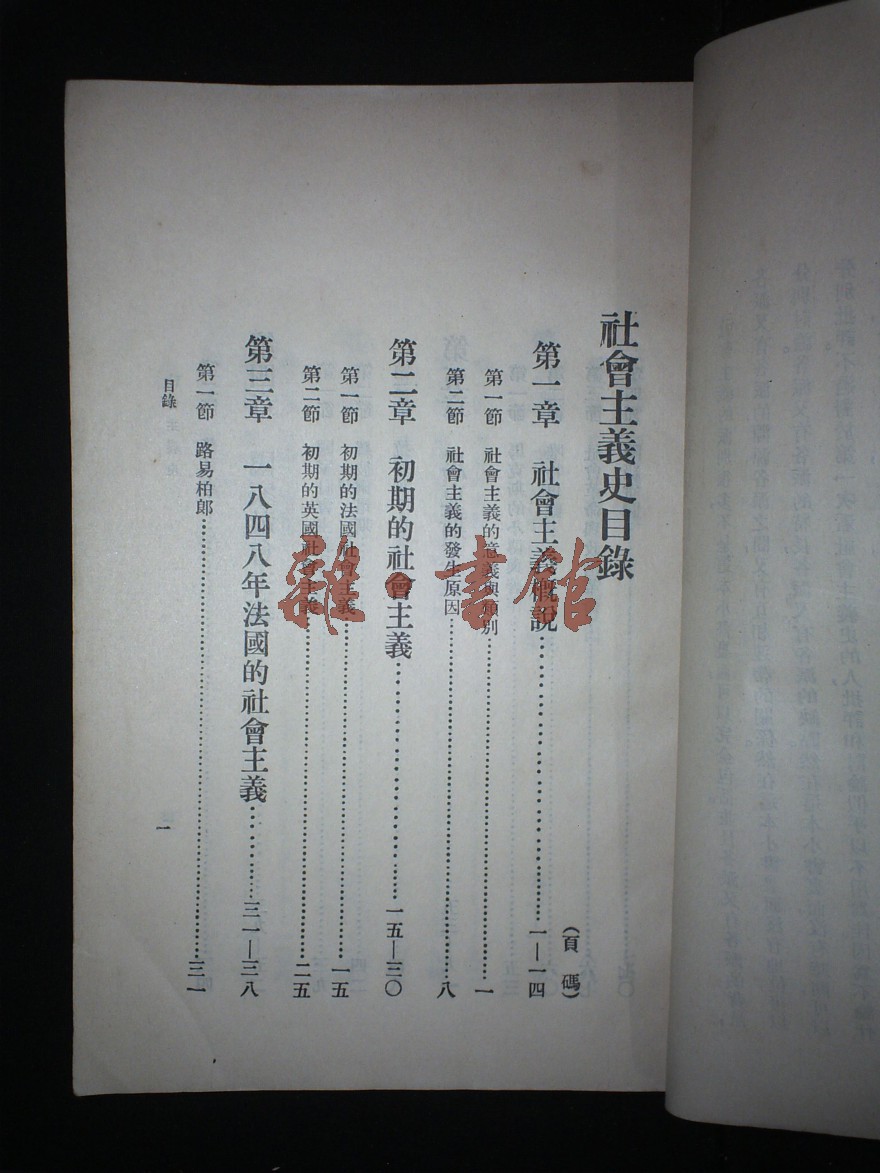 社會主義史目錄
（頁碼）
第一章　社會主義概說⋯⋯⋯⋯一—一四
第一節　社會主義的意義與類別⋯⋯⋯⋯一
第二節　社會主義的發生原因⋯⋯⋯⋯八
第二章　初期的社會主義⋯⋯⋯⋯一五—三〇
第一節　初期的法國社會主義⋯⋯⋯⋯一五
第二節　初期的英國社會主義⋯⋯⋯⋯二五
第三章　一八四八年法國的社會主義⋯⋯⋯⋯三一—三八
第一節　路易柏郎⋯⋯⋯⋯三一
目錄
一
雜·書館